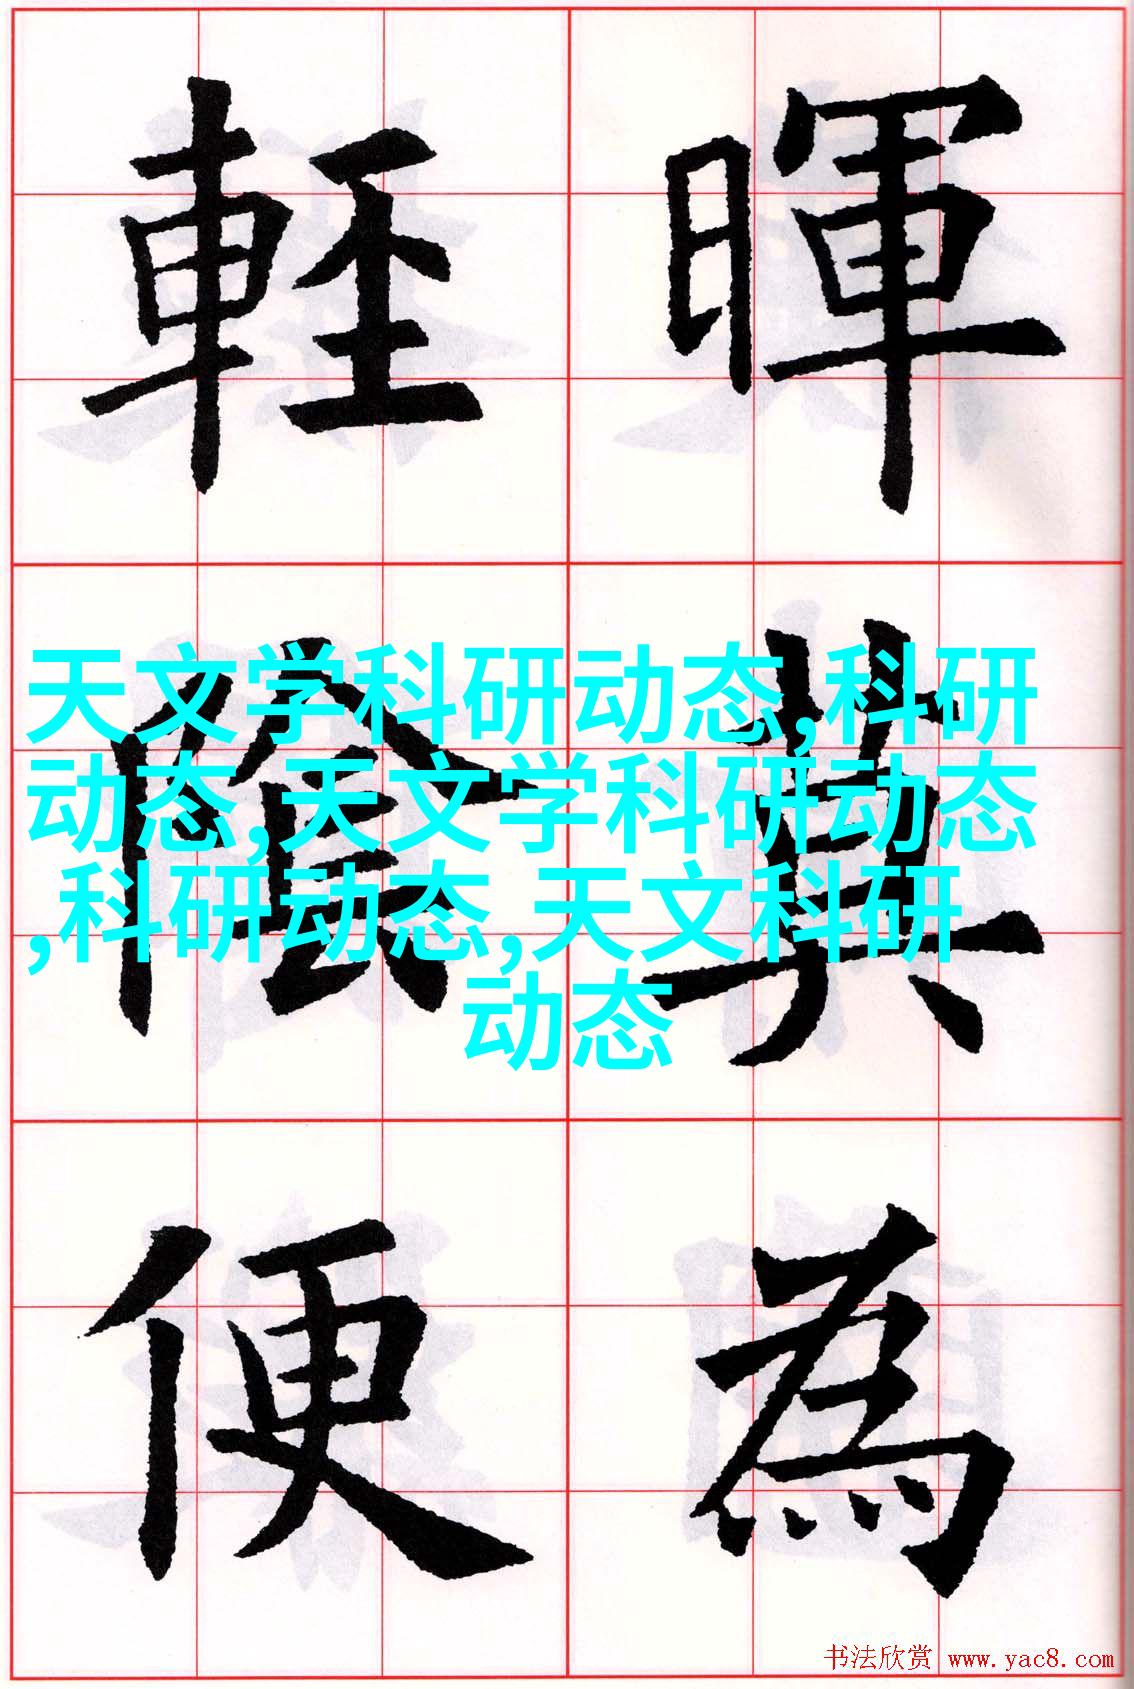 暉莫為
輕陰便
天文学科研动态,科研
动态,天文学科研动态
,科研动态,天文科研
动态
书法欣赏 www.yac8.com